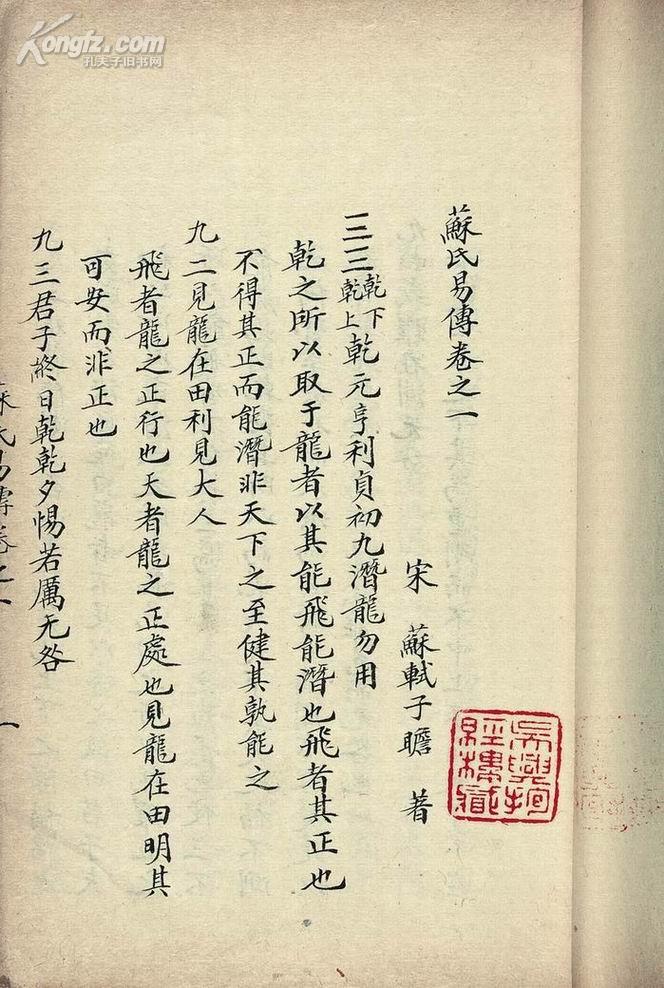 Kongfz.com
孔夫子旧书网
蘇氏易傳卷之一
宋 蘇軾子瞻 著
三三乾下乾上乾元亨利貞初九潛龍勿用
乾之所以取于龍者以其能飛能潛也飛者其正也
不得其正而能潛非天下之至健其孰能之
九二見龍在田利見大人
飛者龍之正行也天者龍之正處也見龍在田明其
可安而非正也
九三君子終日乾乾夕惕若厲无咎
蘇氏易傳卷之一 一
吳興抱經樓藏